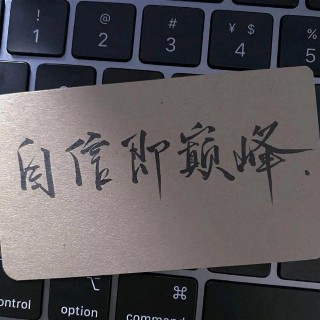 ! @ # ¥ $ %
1 2 3 4 5
自信即巅峰.
ontrol option ⌘
command